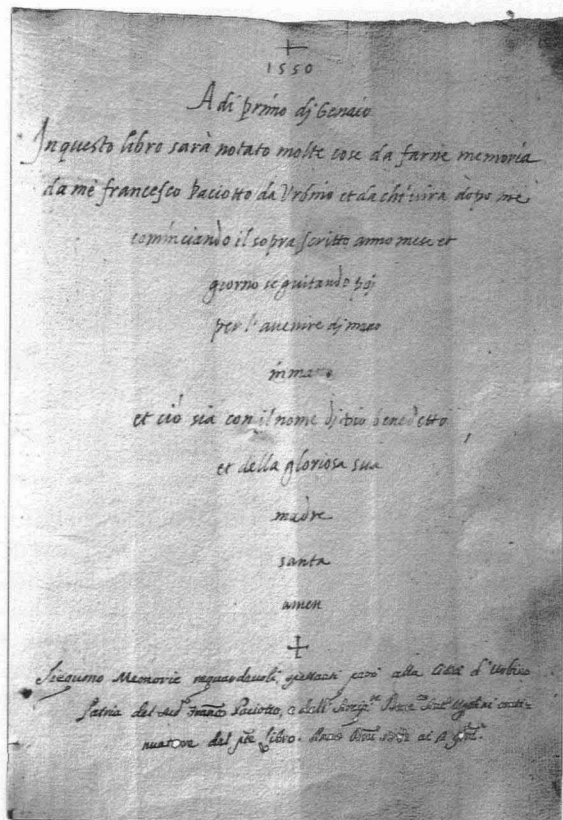 1550
A di primo dj Genaio
In questo libro sarà notato molte cose da farne memoria
da mè francesco Paciotto da Vrbino et da chi uira dopo me
cominciando il sopra scritto anno mese et
giorno seguitando poj
per l'auenire dj mano
in mano
et ciò sia con il nome di Dio benedetto
et della gloriosa sua
madre
santa
amen
Sieguono Memorie riguardauoli, spettanti però alla Città d'Urbino
Patria del Franco Paciotto, e dell'
del libro.